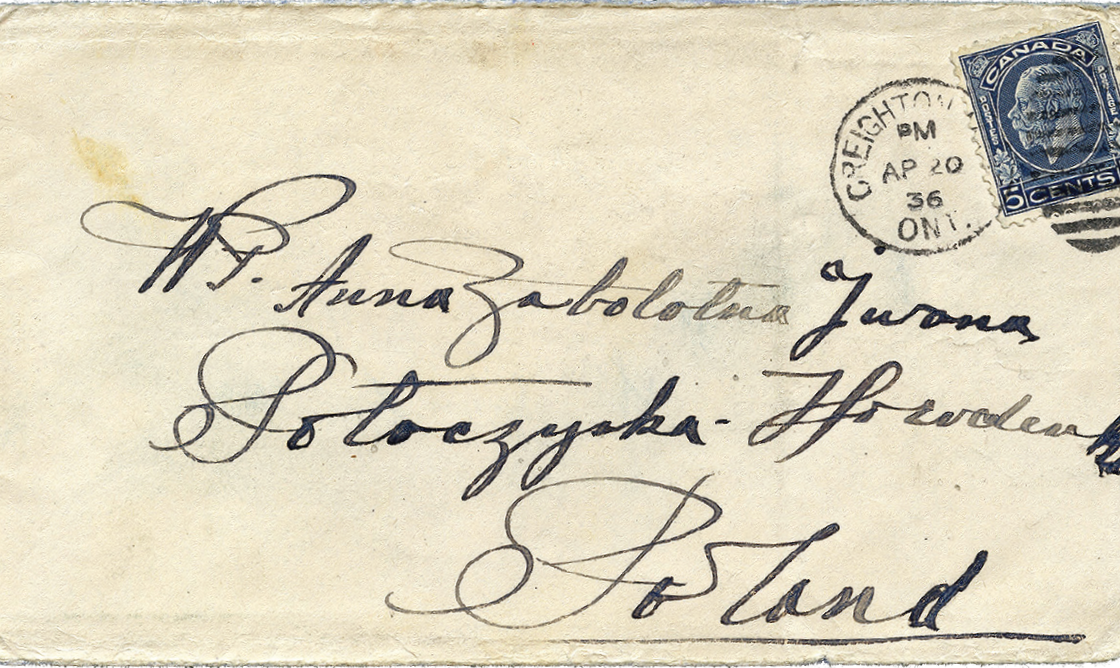 CANADA
POSTES
5 CENTS
CREIGHTON
PM
AP 20
36
ONT.
W.P. Anna Zabolotna Iwana
Potoczyska - Horoden
Poland